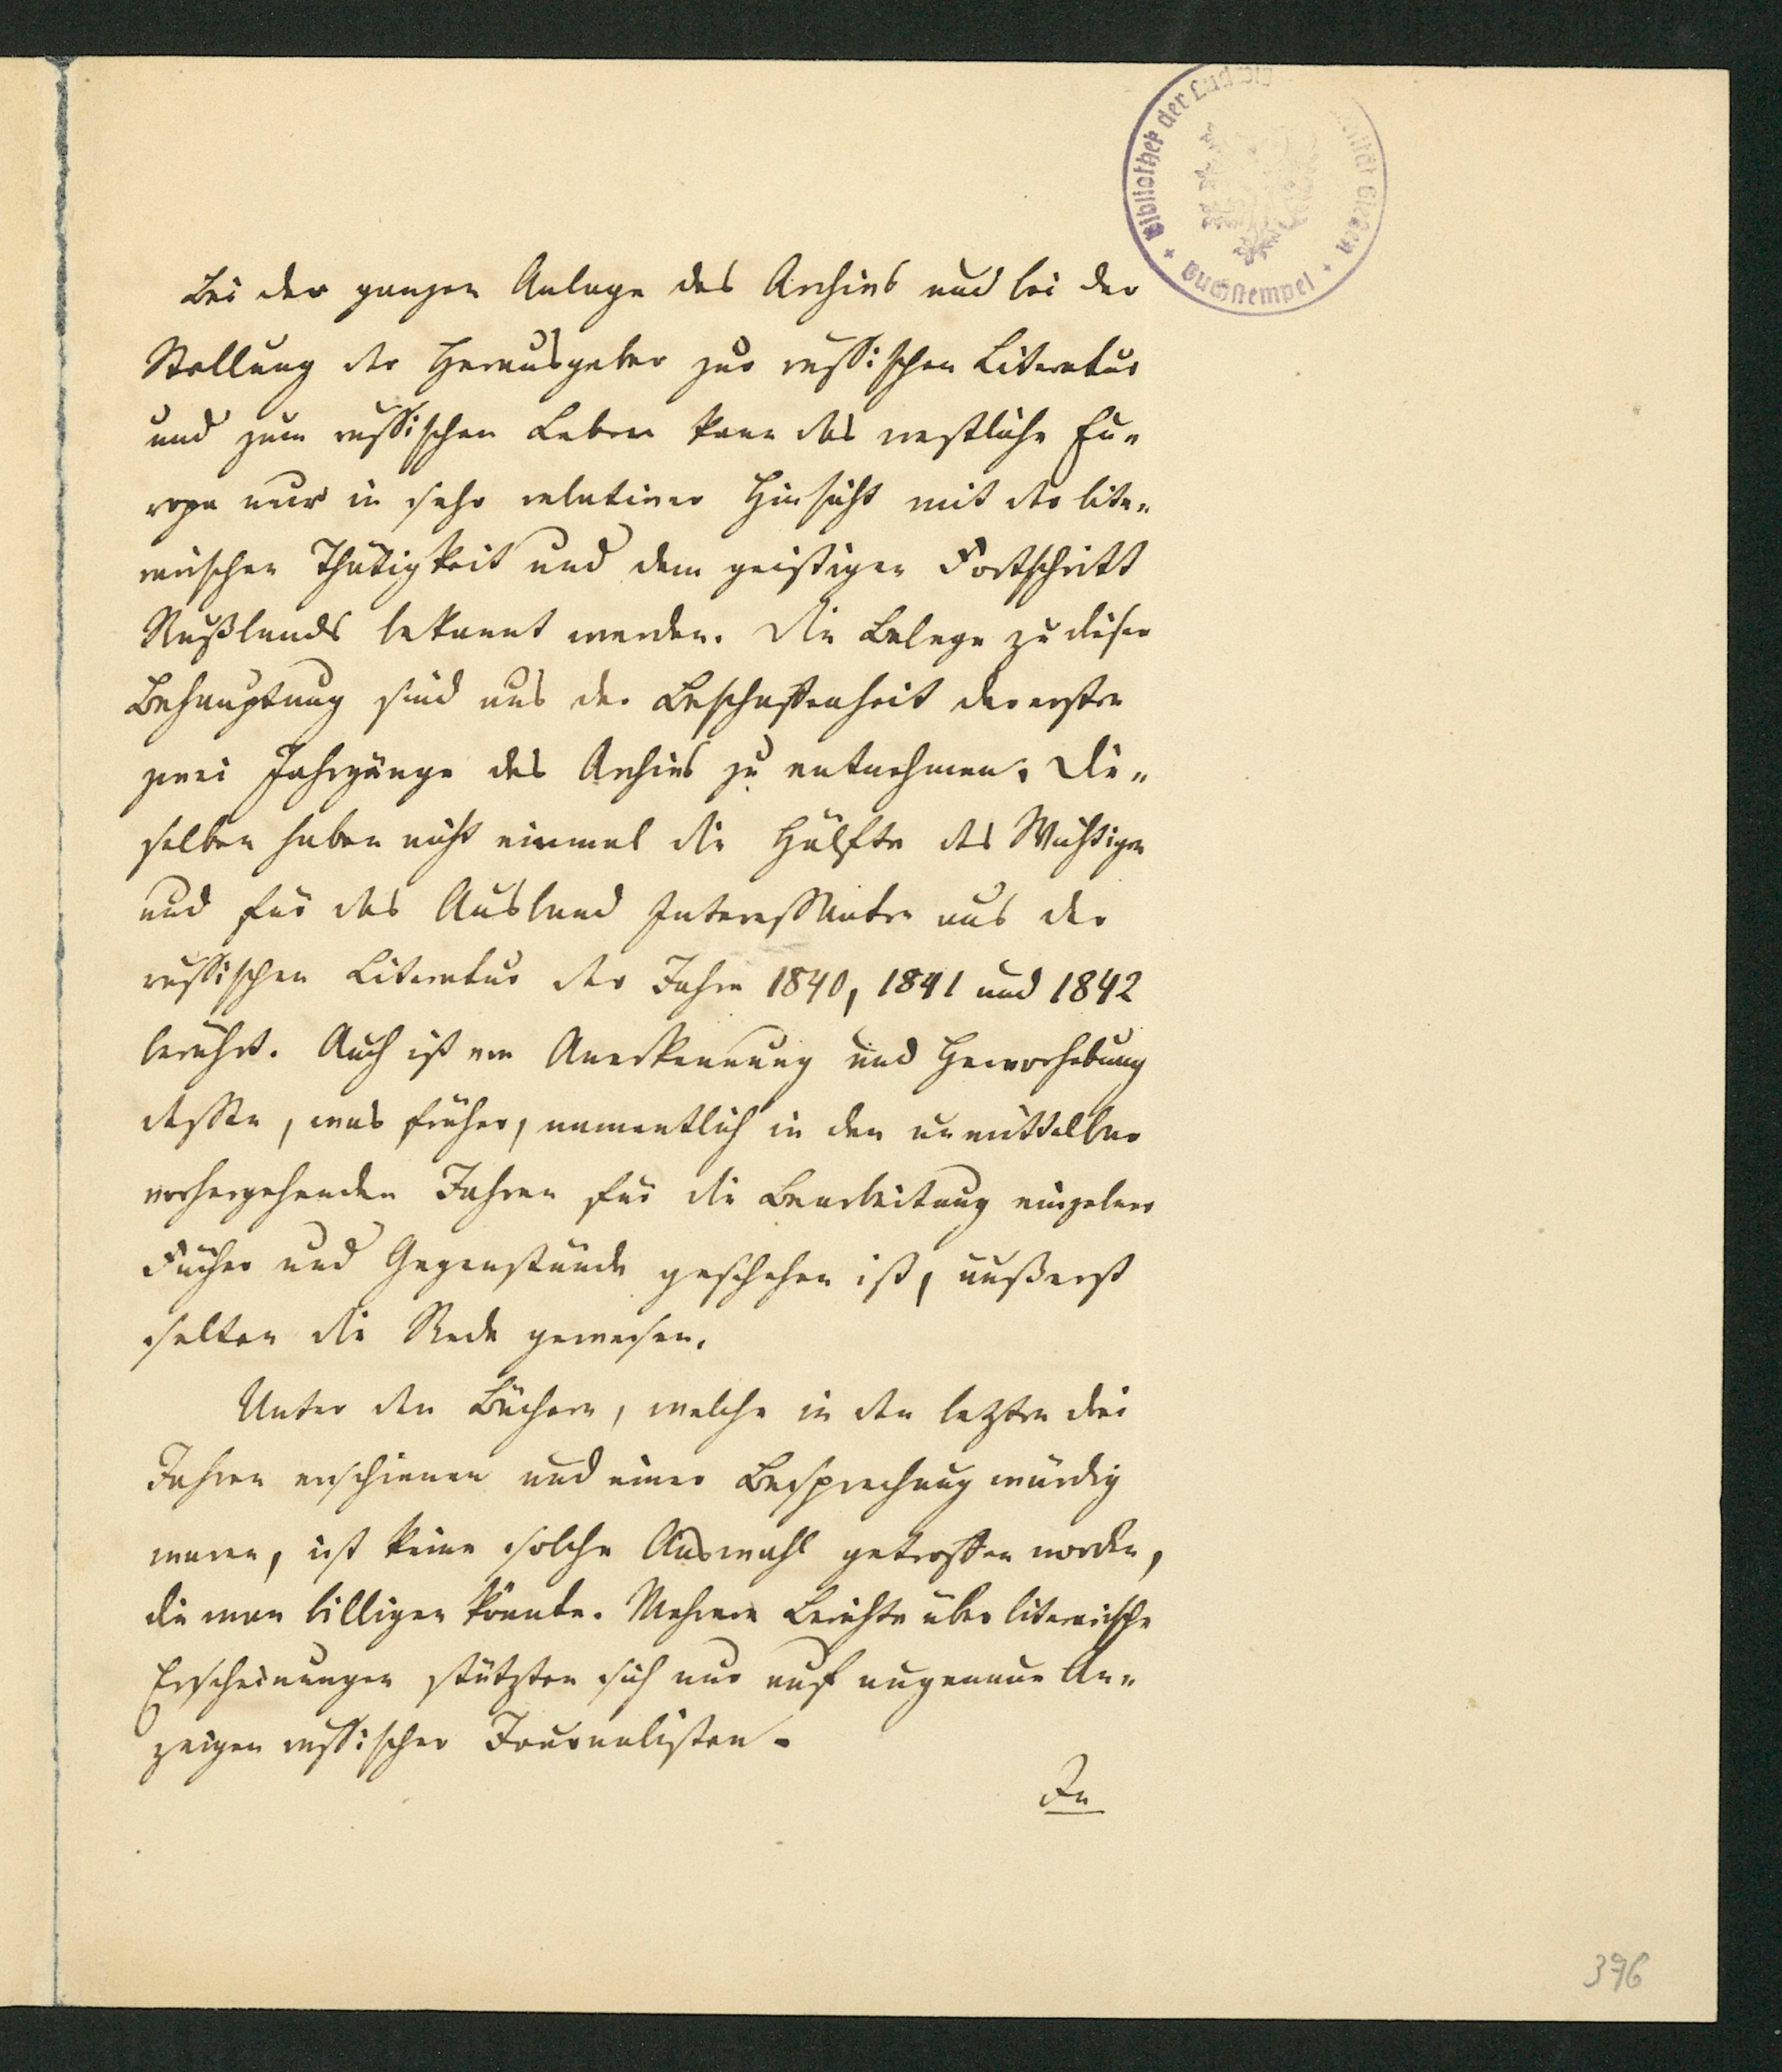 Bibliothek der Ludwigs
Gießen
Buchstempel
Bei der ganzen Anlage des Archivs und bei der
Stellung der Herausgeber zur russischen Literatur
und zum russischen Leben kann das westliche Eu-
ropa nur in sehr relativer Hinsicht mit der lite-
rarischen Thätigkeit und dem geistigen Fortschritt
Rußlands bekannt werden. Die Belege zu dieser
Behauptung sind aus der Beschaffenheit der ersten
zwei Jahrgänge des Archivs zu entnehmen. Die-
selben haben nicht einmal die Hälfte des Wichtigen
und für das Ausland Interessanten aus der
russischen Literatur der Jahre 1840, 1841 und 1842
berührt. Auch ist von Anerkennung und Hervorhebung
dessen, was früher, namentlich in den unmittelbar
vorhergehenden Jahren für die Bearbeitung einzelner
Fächer und Gegenstände geschehen ist, äußerst
selten die Rede gewesen.
Unter den Büchern, welche in den letzten drei
Jahren erschienen und einer Besprechung würdig
waren, ist keine solche Auswahl getroffen worden,
die man billigen könnte. Mehrere Berichte über literarische
Erscheinungen stützten sich nur auf ungenaue An-
zeigen russischer Journalisten.
In
396